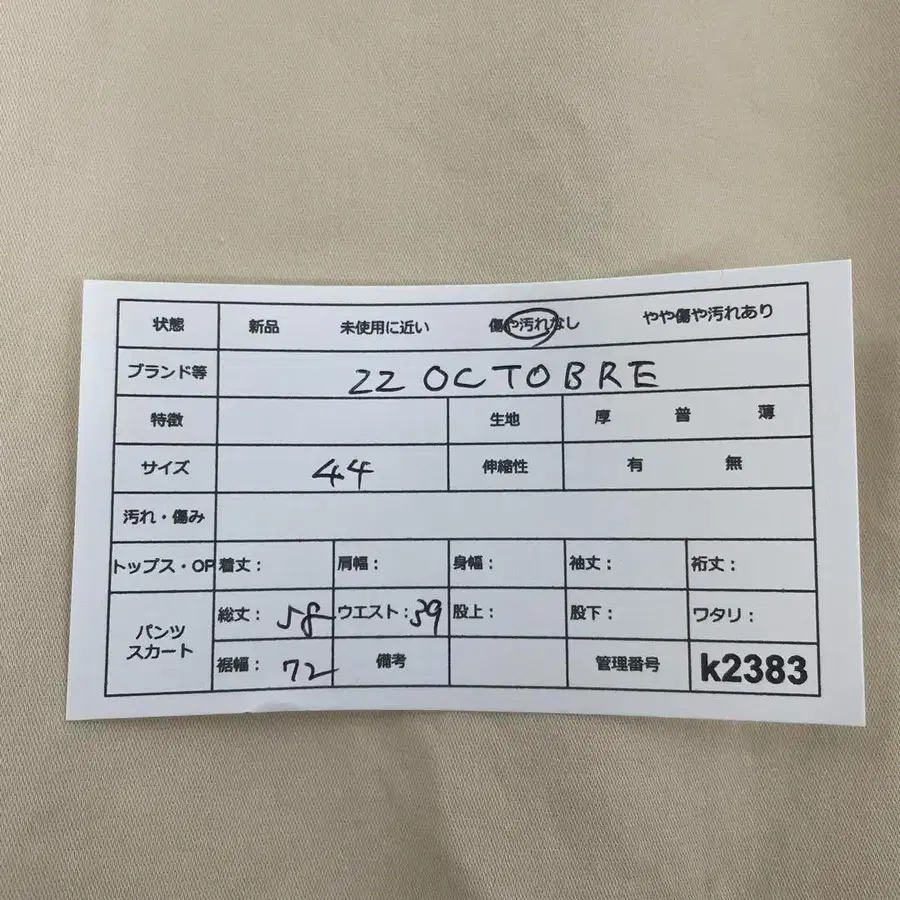 状態 新品 未使用に近い 傷や汚れなし やや傷や汚れあり
ブランド等 22 OCTOBRE
特徴 生地 厚 普 薄
サイズ 44 伸縮性 有 無
汚れ・傷み
トップス・OP 着丈： 肩幅： 身幅： 袖丈： 裄丈：
パンツ スカート 総丈： 58 ウエスト：39 股上： 股下： ワタリ：
裾幅： 72 備考 管理番号 k2383